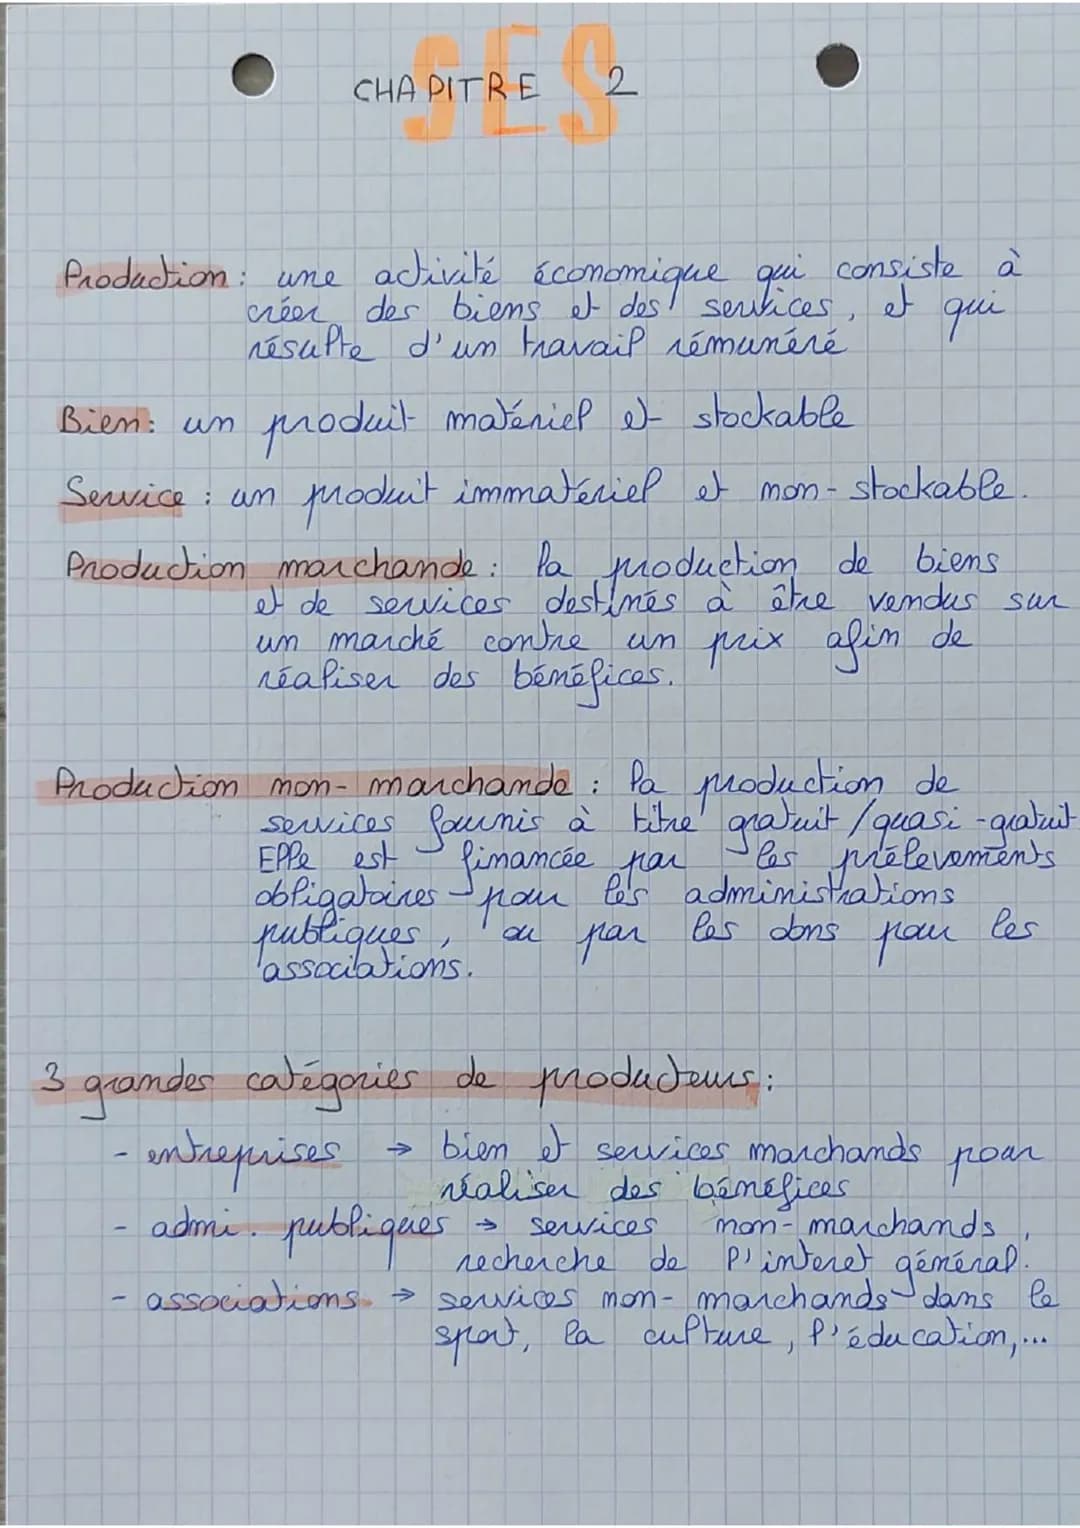 SES
CHAPITRE 2
Production : une activité économique qui consiste à
créer des biens et des services, et qui
résulte d'un travail rémunéré
Bien : un produit matériel et stockable
Service : un produit immatériel et non-stockable.
Production marchande : la production de biens
et de services destinés à être vendus sur
un marché contre un prix afin de
réaliser des bénéfices.
Production non-marchande : la production de
services fournis à titre gratuit/quasi-gratuit
Elle est financée par les prélevements
obligatoires pour les administrations
publiques, ou par les dons pour les
associations.
3 grandes catégories de producteurs :
- entreprises → bien et services marchands pour
réaliser des bénéfices
- admi. publiques → services non-marchands,
recherche de l'interet général.
- associations → services non-marchands dans le
sport, la culture, l'éducation,...